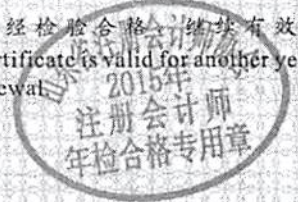 经检验合格，继续有效
rtificate is valid for another ye
ewal
2015年
注册会计师
年检合格专用章